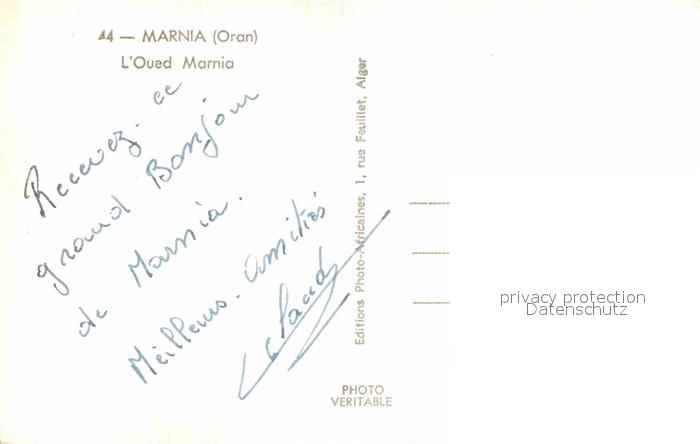 44 — MARNIA (Oran)
L'Oued Marnia
Recevez ce
grand Bonjour
de Marnia.
Meilleurs Amitiés
Editions Photo-Africaines, 1, rue Feuillet, Alger
privacy protection
Datenschutz
PHOTO
VERITABLE